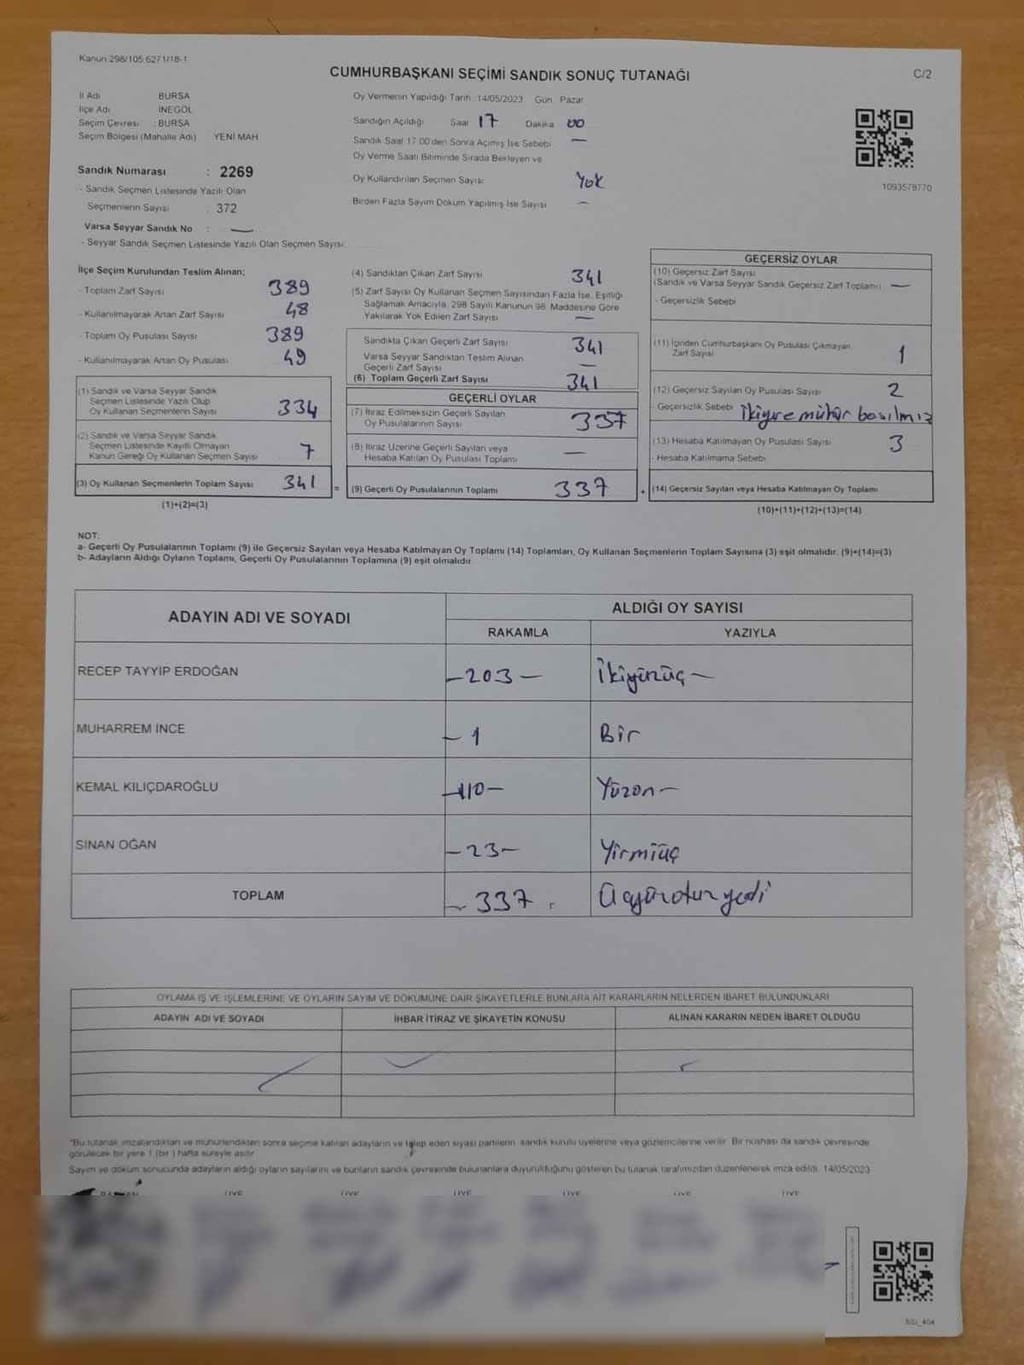 Kanun:298/105.6271/18-1
CUMHURBAŞKANI SEÇİMİ SANDIK SONUÇ TUTANAĞI
C/2
İl Adı BURSA
İlçe Adı İNEGÖL
Seçim Çevresi : BURSA
Seçim Bölgesi (Mahalle Adı) YENİ MAH
Sandık Numarası : 2269
- Sandık Seçmen Listesinde Yazılı Olan
Seçmenlerin Sayısı : 372
Varsa Seyyar Sandık No : —
- Seyyar Sandık Seçmen Listesinde Yazılı Olan Seçmen Sayısı:
Oy Vermenin Yapıldığı Tarih :14/05/2023 Gün Pazar
Sandığın Açıldığı Saat 17 Dakika 00
Sandık Saat 17.00'den Sonra Açılmış İse Sebebi —
Oy Verme Saati Bitiminde Sırada Bekleyen ve
Oy Kullandırılan Seçmen Sayısı Yok
Birden Fazla Sayım Döküm Yapılmış İse Sayısı —
1093578770
İlçe Seçim Kurulundan Teslim Alınan;
- Toplam Zarf Sayısı 389
- Kullanılmayarak Artan Zarf Sayısı 48
- Toplam Oy Pusulası Sayısı 389
- Kullanılmayarak Artan Oy Pusulası 49
(1) Sandık ve Varsa Seyyar Sandık
Seçmen Listesinde Yazılı Olup
Oy Kullanan Seçmenlerin Sayısı 334
(2) Sandık ve Varsa Seyyar Sandık
Seçmen Listesinde Kayıtlı Olmayan
Kanun Gereği Oy Kullanan Seçmen Sayısı 7
(3) Oy Kullanan Seçmenlerin Toplam Sayısı 341
(1)+(2)=(3)
(4) Sandıktan Çıkan Zarf Sayısı 341
(5) Zarf Sayısı Oy Kullanan Seçmen Sayısından Fazla İse, Eşitliği
Sağlamak Amacıyla, 298 Sayılı Kanunun 98. Maddesine Göre
Yakılarak Yok Edilen Zarf Sayısı —
Sandıkta Çıkan Geçerli Zarf Sayısı 341
Varsa Seyyar Sandıktan Teslim Alınan
Geçerli Zarf Sayısı —
(6) Toplam Geçerli Zarf Sayısı 341
GEÇERLİ OYLAR
(7) İtiraz Edilmeksizin Geçerli Sayılan
Oy Pusulalarının Sayısı 337
(8) İtiraz Üzerine Geçerli Sayılan veya
Hesaba Katılan Oy Pusulası Toplamı —
= (9) Geçerli Oy Pusulalarının Toplamı 337 +
GEÇERSİZ OYLAR
(10) Geçersiz Zarf Sayısı
(Sandık ve Varsa Seyyar Sandık Geçersiz Zarf Toplamı) —
- Geçersizlik Sebebi
(11) İçinden Cumhurbaşkanı Oy Pusulası Çıkmayan
Zarf Sayısı 1
(12) Geçersiz Sayılan Oy Pusulası Sayısı 2
- Geçersizlik Sebebi İkiyire mühür basılmız
(13) Hesaba Katılmayan Oy Pusulası Sayısı 3
- Hesaba Katılmama Sebebi
(14) Geçersiz Sayılan veya Hesaba Katılmayan Oy Toplamı
(10)+(11)+(12)+(13)=(14)
NOT:
a- Geçerli Oy Pusulalarının Toplamı (9) ile Geçersiz Sayılan veya Hesaba Katılmayan Oy Toplamı (14) Toplamları, Oy Kullanan Seçmenlerin Toplam Sayısına (3) eşit olmalıdır. (9)+(14)=(3)
b- Adayların Aldığı Oyların Toplamı, Geçerli Oy Pusulalarının Toplamına (9) eşit olmalıdır.
ADAYIN ADI VE SOYADI
ALDIĞI OY SAYISI
RAKAMLA YAZIYLA
RECEP TAYYİP ERDOĞAN —203— İkiyüzüç—
MUHARREM İNCE — 1 Bir
KEMAL KILIÇDAROĞLU —110— Yüzon—
SİNAN OĞAN —23— Yirmiüç
TOPLAM — 337 Üçyüzotuzyedi
OYLAMA İŞ VE İŞLEMLERİNE VE OYLARIN SAYIM VE DÖKÜMÜNE DAİR ŞİKAYETLERLE BUNLARA AİT KARARLARIN NELERDEN İBARET BULUNDUKLARI
ADAYIN ADI VE SOYADI İHBAR İTİRAZ VE ŞİKAYETİN KONUSU ALINAN KARARIN NEDEN İBARET OLDUĞU
"Bu tutanak imzalandıktan ve mühürlendikten sonra seçime katılan adayların ve talep eden siyasi partilerin sandık kurulu üyelerine veya gözlemcilerine verilir. Bir nüshası da sandık çevresinde
görülecek bir yere 1 (bir) hafta süreyle asılır.
Sayım ve döküm sonucunda adayların aldığı oyların sayılarını ve bunların sandık çevresinde bulunanlara duyurulduğunu gösteren bu tutanak tarafımızdan düzenlenerek imza edildi. 14/05/2023
ÜYE ÜYE ÜYE ÜYE ÜYE ÜYE